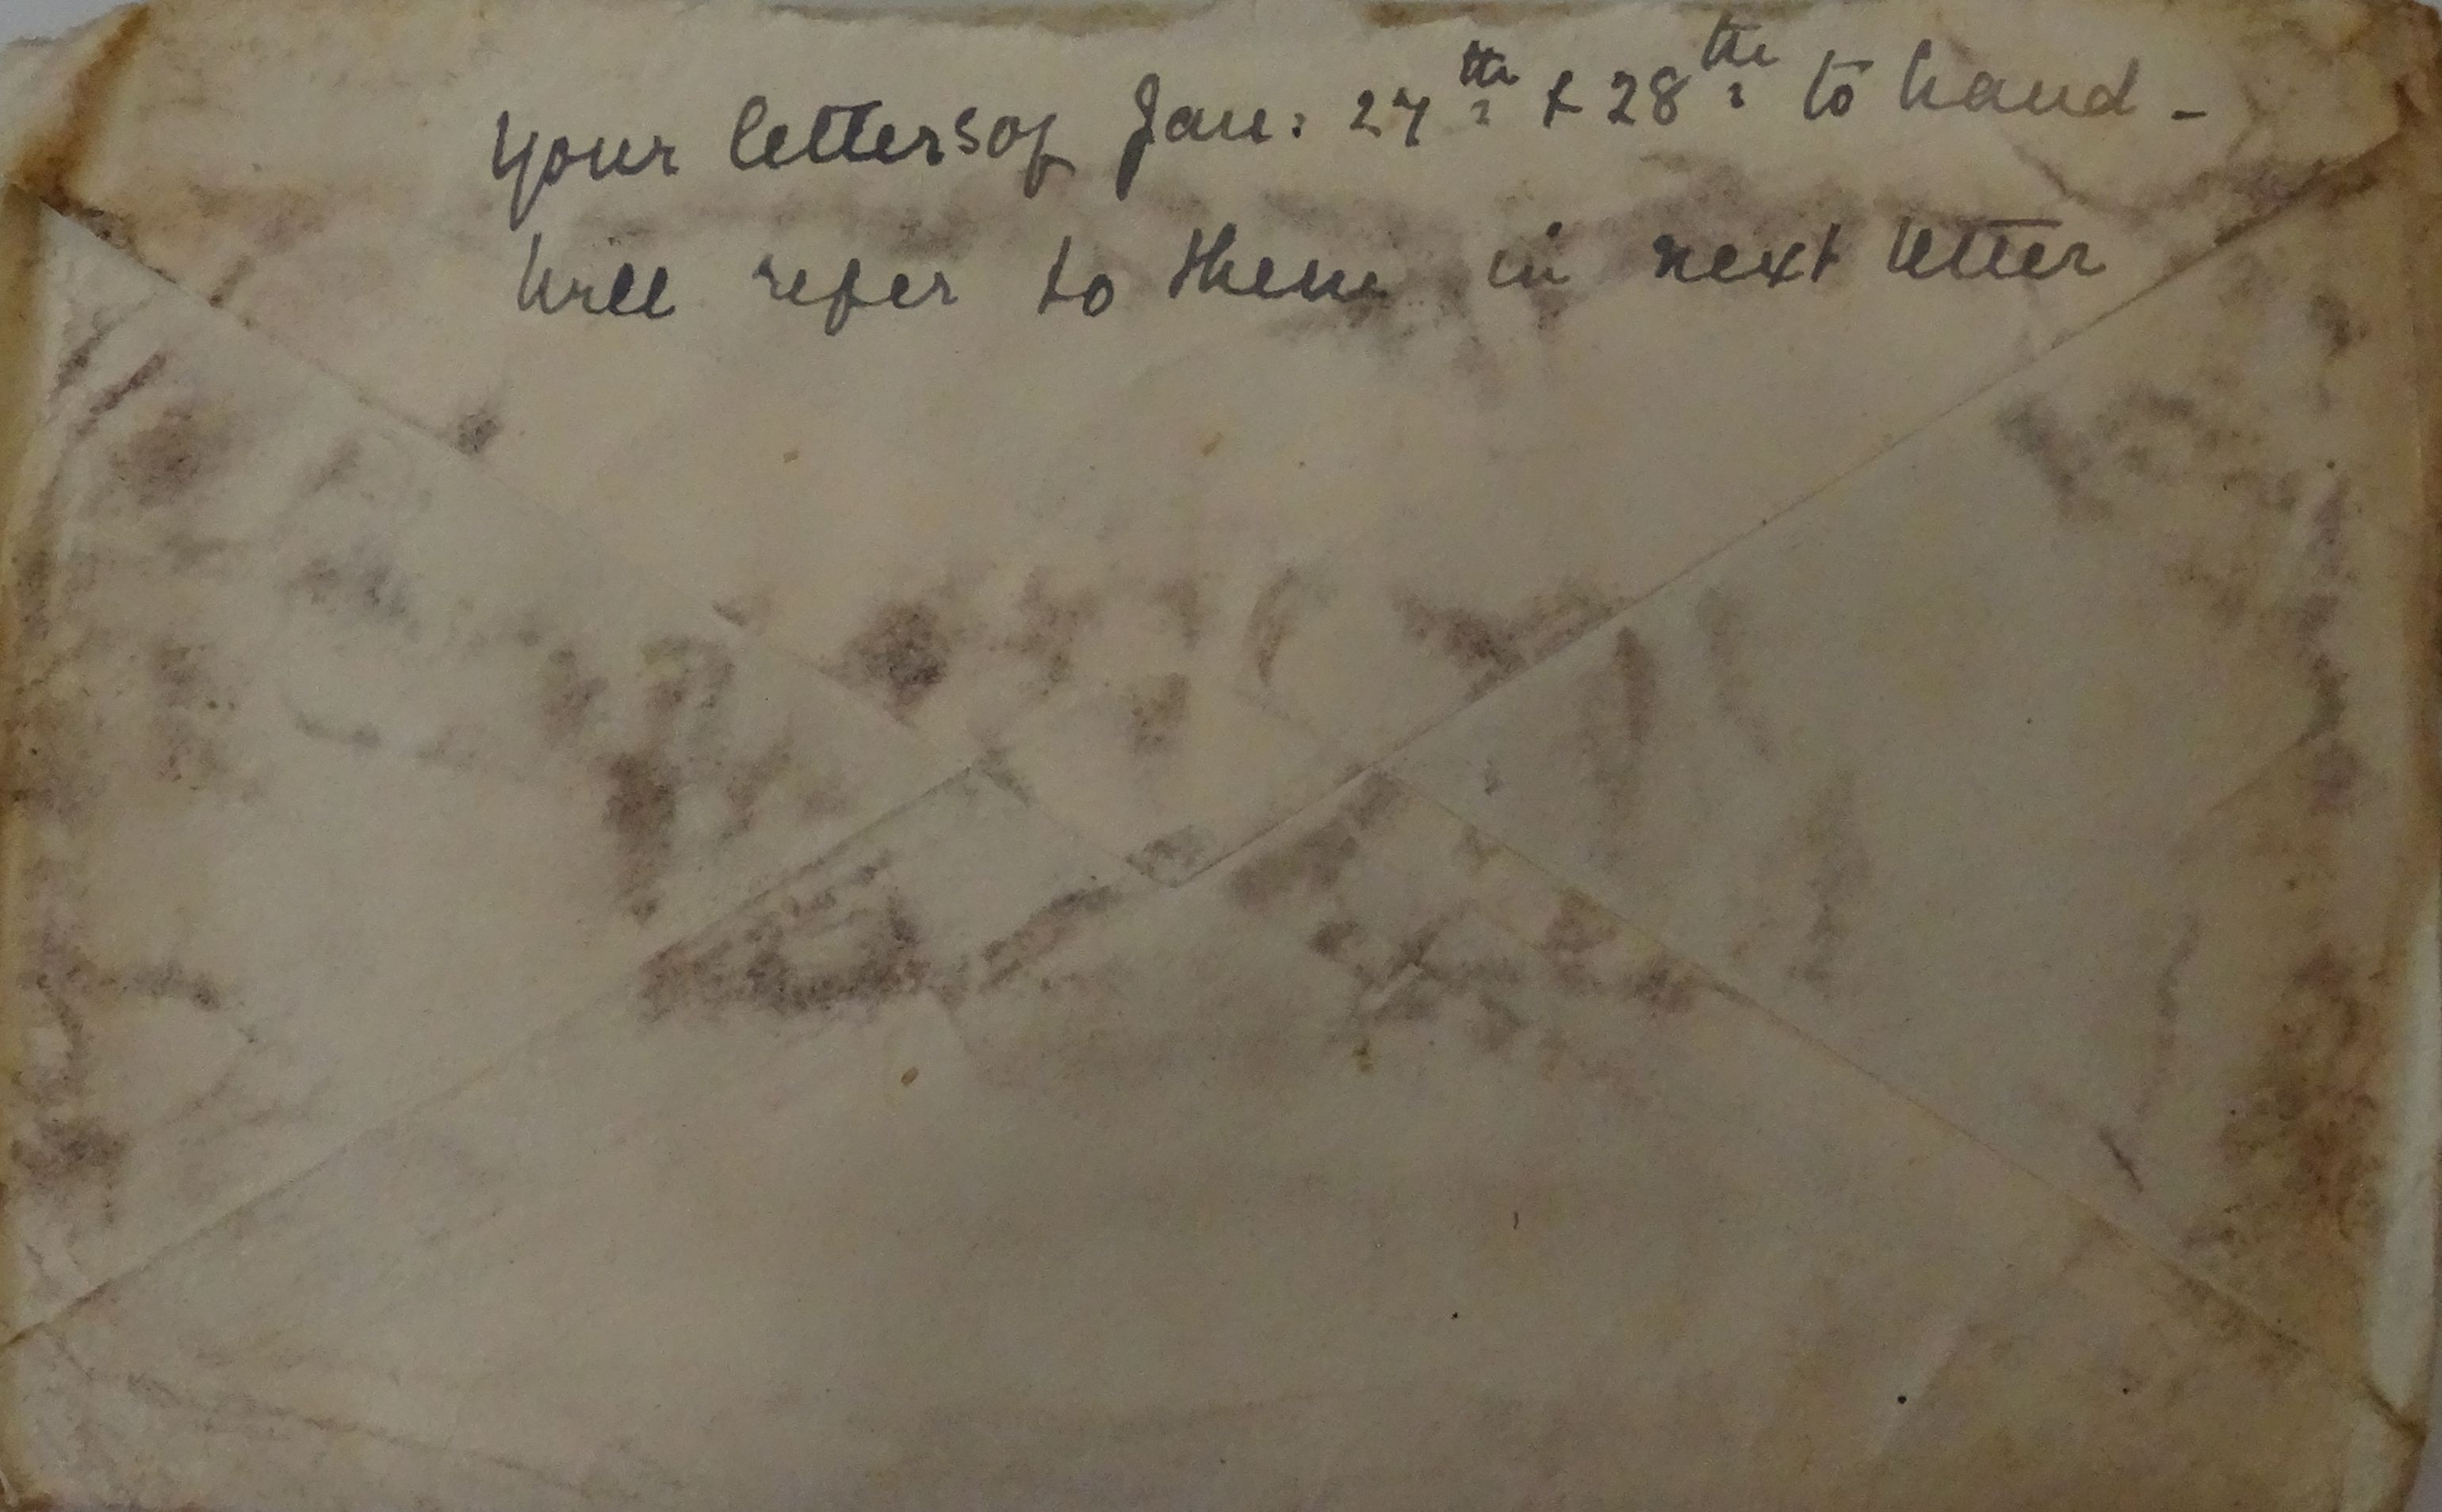 your letters of Jan: 27th & 28th to hand -
will refer to them in next letter